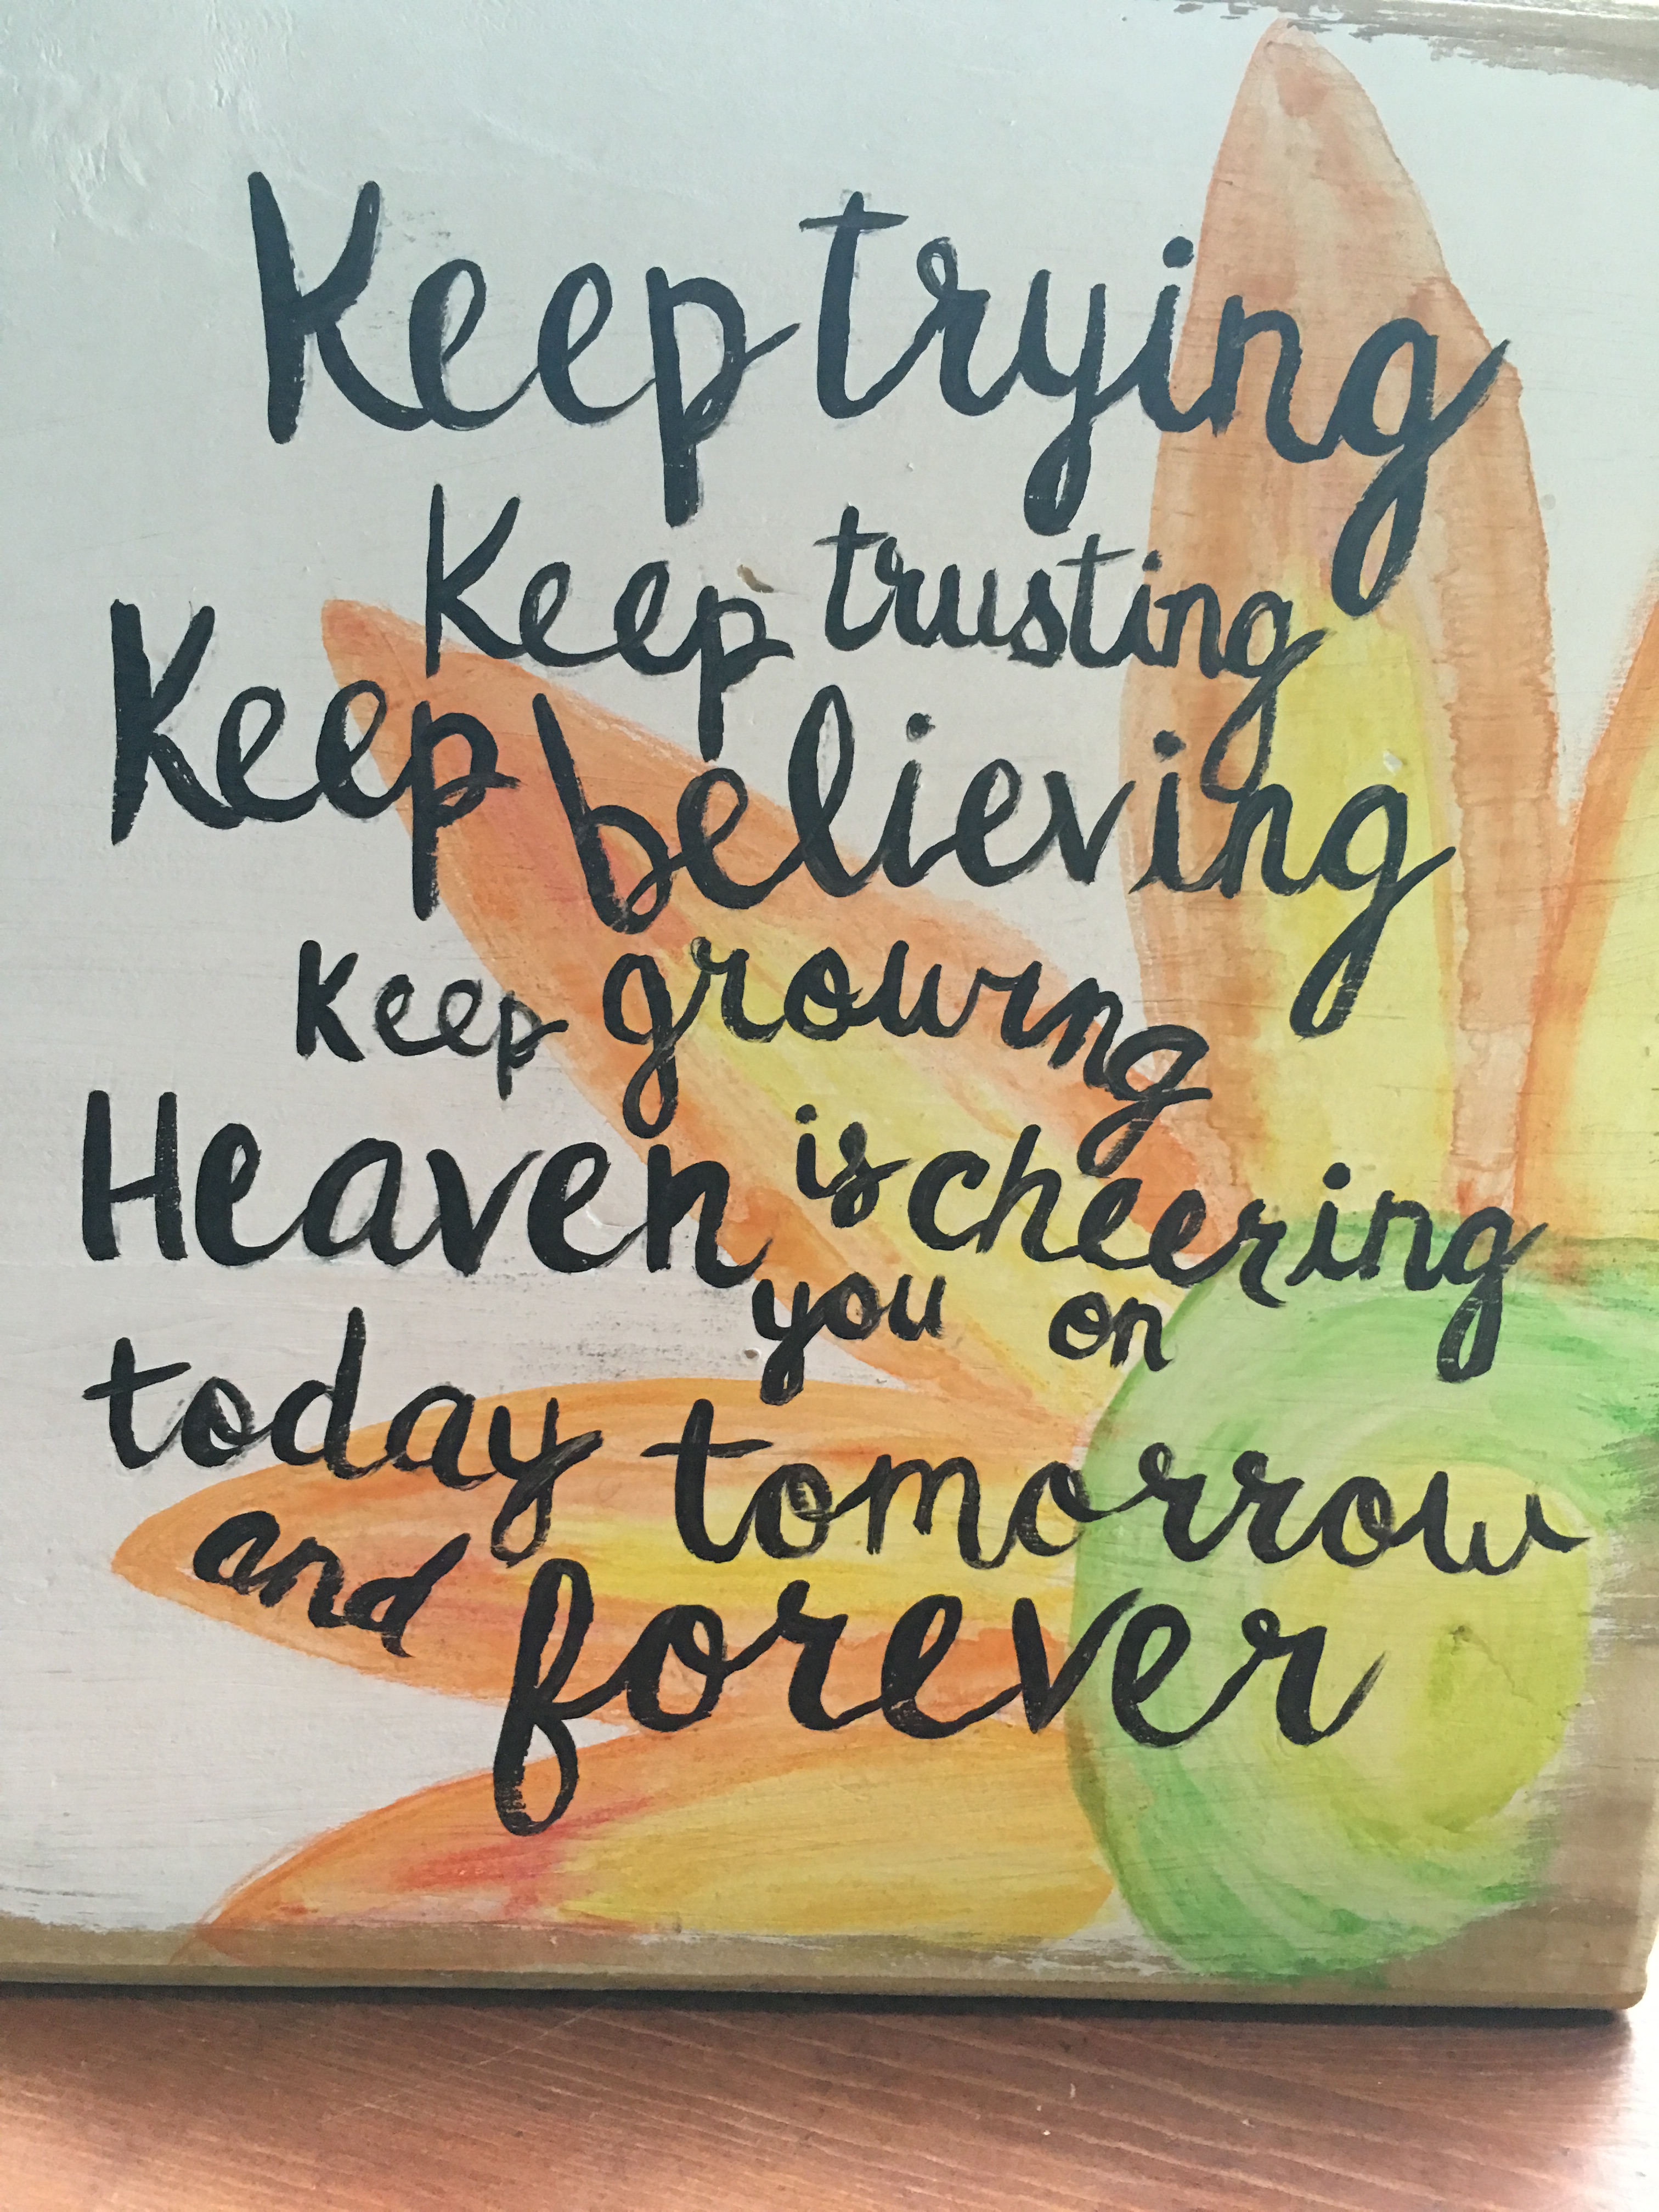 Keep trying
Keep trusting
Keep believing
Keep growing
Heaven is cheering
you on
today tomorrow
and forever